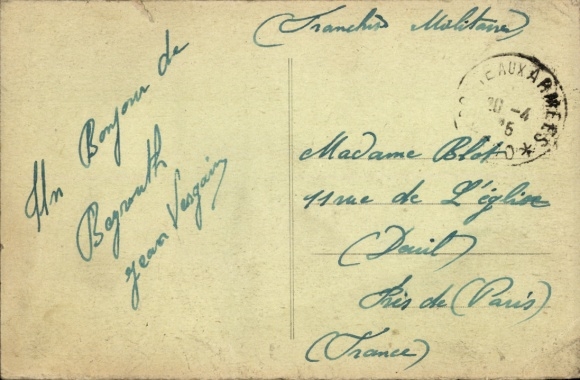 (Franchise Militaire)
Un Bonjour de
Beyrouth
Jean Vesgain
AUX ARMEES *
30 -4
Madame Blot
11 rue de L'église
(Deuil)
Près de (Paris)
(France)